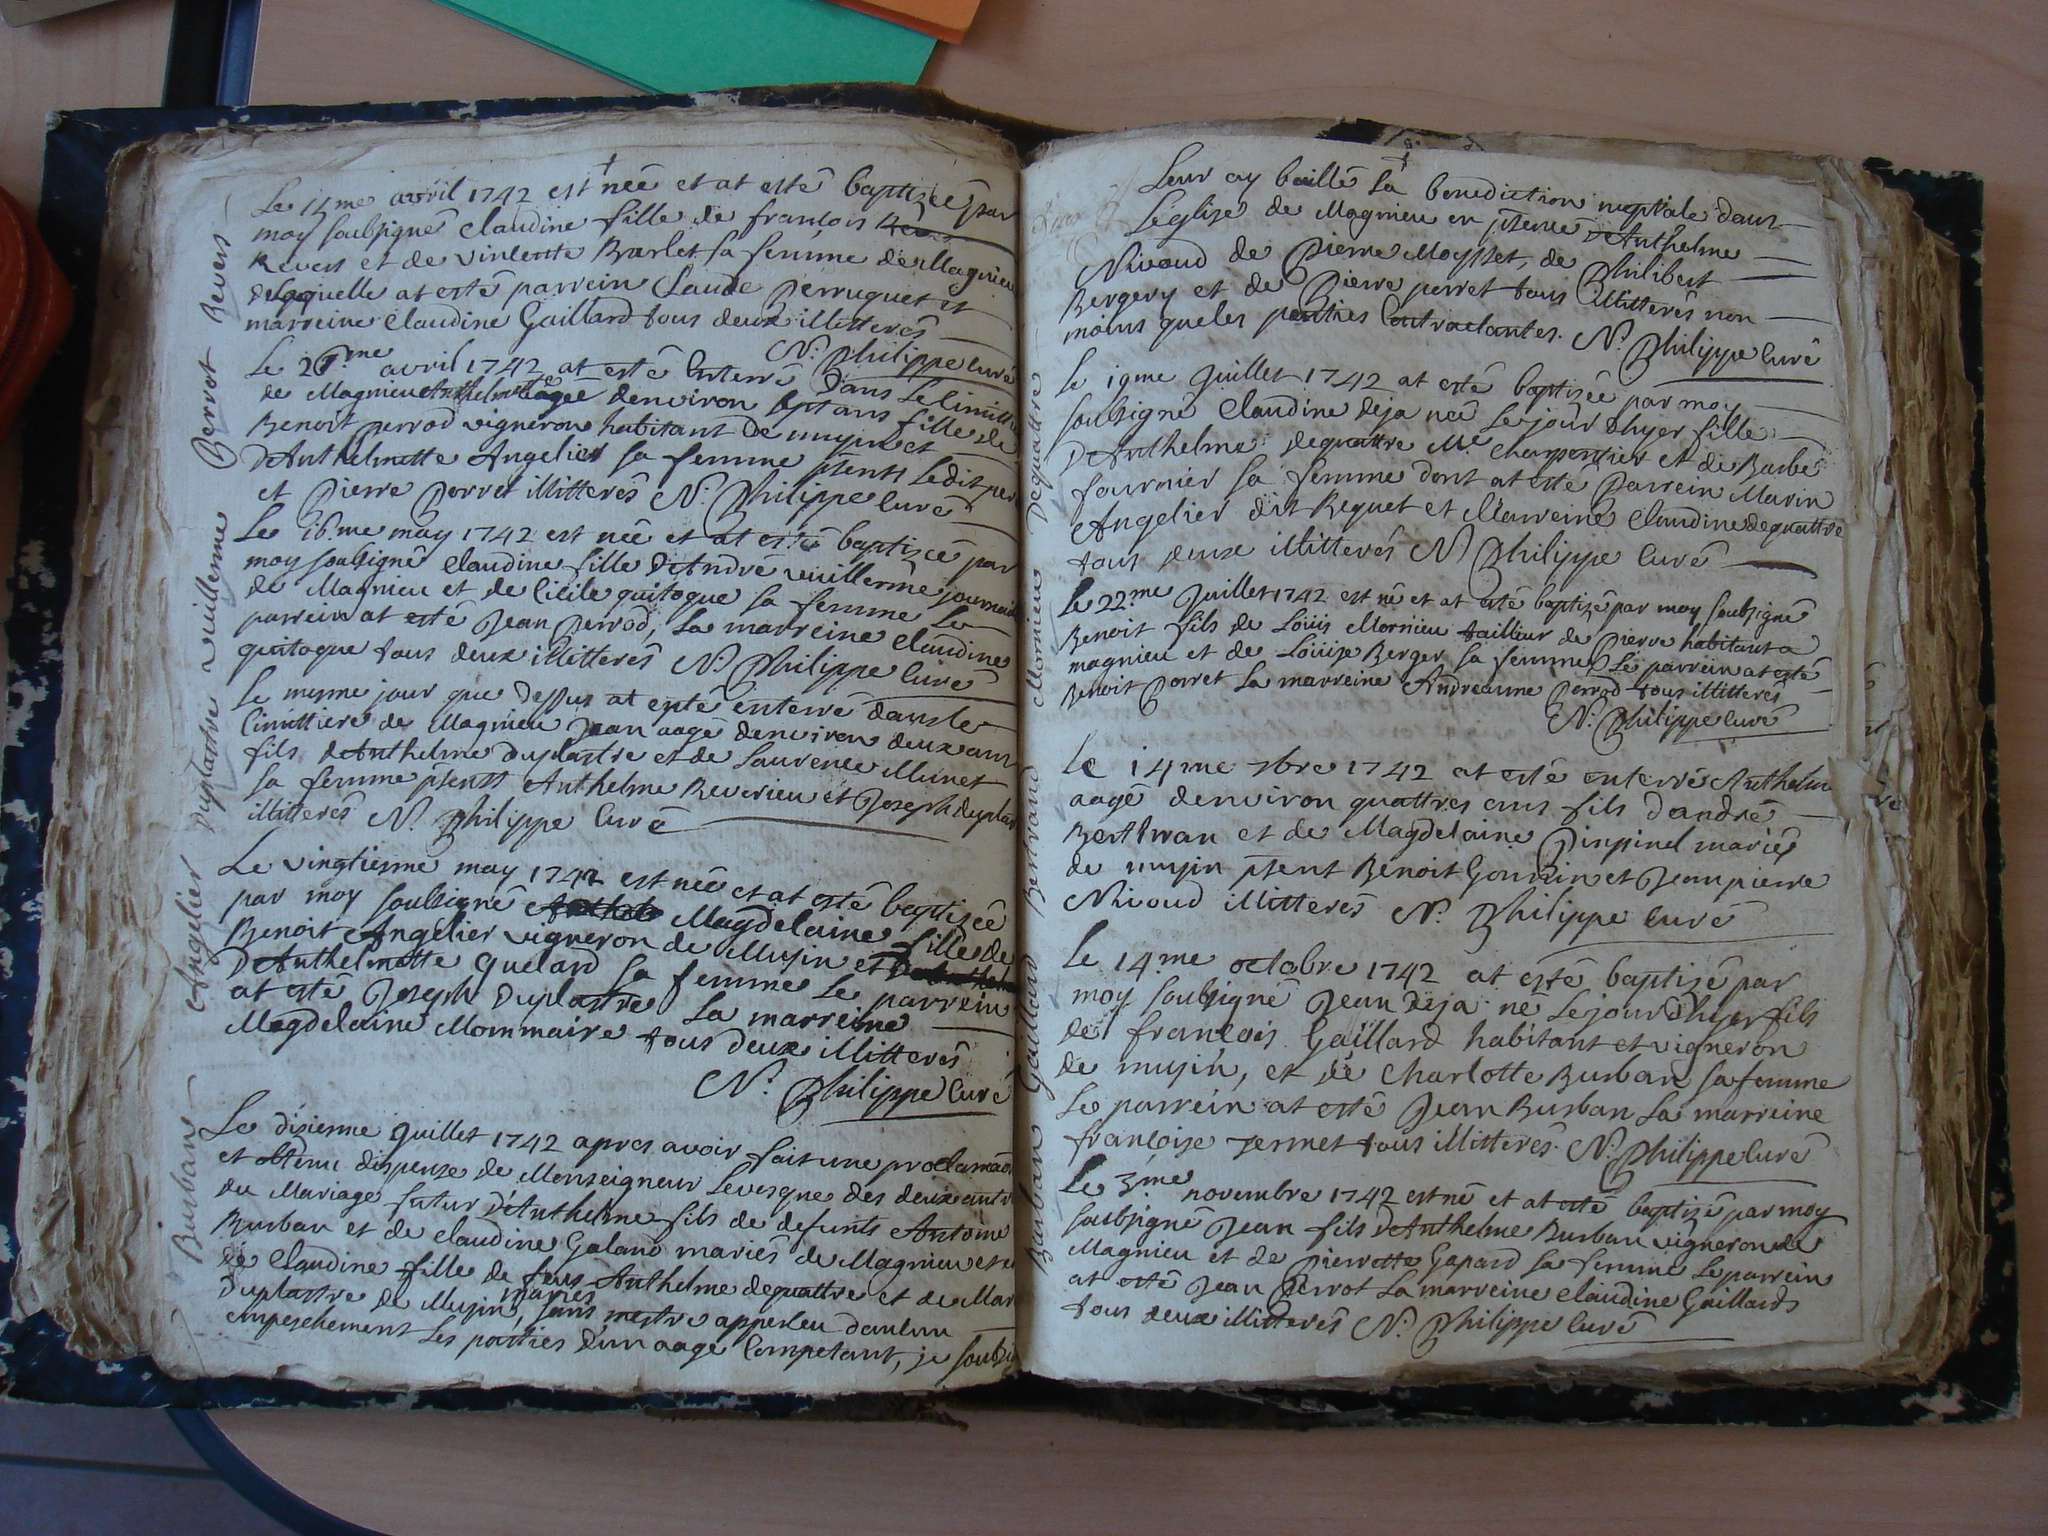 Le 14me avril 1742 est neê et at estê baptizeê par
moy soubsignê Claudine fille de francois
Revers et de vincente Barlet sa femme de Magnieu
de laquelle at estê parrein Claude Perruquet et
marreine Claudine Gaillard tous deux illitterês
N. Philippe Curê
Le avril 1742 at estê enterrê dans le Cimittiere
de Magnieu Anthelmette ageê denviron sept ans fille de
Benoit perrod vigneron habitant de muzin et
D'Anthelmette Angelier sa femme pñents ledit per
et Pierre Perret illitterês N. Philippe Curê
Le 16.me may 1742 est neê et at estê baptizeê par
moy soubsignê Claudine fille D'Andre vuillerme journal
de Magnieu et de Cicile quitoque sa femme Le
parrein at estê Jean Perrod, La marreine Claudine
quitoque tous deux illitterês N. Philippe Curê
Le mesme jour que dessus at estê enterrê dans le
Cimittiere de Magnieu Jean aagê denviron deux ans
fils d'Anthelme Duplastre et de Laurence Munet
sa femme pñents Anthelme Reverieu et Joseph duplas
illitterês N. Philippe Curê
Le vingtiesme may 1742 est neê et at estê baptizeê
par moy soubsignê Magdelaine fille de
Benoit Angelier vigneron de Muzin et
D'Anthelmette Quelard sa femme Le parrein
at estê Joseph Duplastre La marreine
Magdelaine Mommaire tous deux illitterês
N. Philippe Curê
Le disiesme Juillet 1742 apres avoir fait une proclamaõn
et obtenu dispense de Monseigneur Levesque des deux autr
du Mariage futur D'Anthelme fils de defunts Antoine
Burban et de Claudine Galand mariês de Magnieu et
de Claudine fille de feus Anthelme dequattre et de Mar
mariês
Duplastre de Muzin, sans mestre apperceu daucun
empeschement Les parties d'un aage Competant, je soubsig
Revers
Perrot
Duplastre vuillerme
Angelier
Burban
Leur ay baillê La benediction nuptiale dans
L'eglise de Magnieu en pñence D'Anthelme
Nivoud de Pierre Moysset, de Philibert
Bergery et de Pierre perret tous illitterês non
moins que les parties Contractantes. N. Philippe Curê
Le 19me Juillet 1742 at estê baptizeê par moy
soubsignê Claudine deja neê Le jour d'hyer fille
D'Anthelme dequattre Me Charpentier et de Barbe
fournier sa femme dont at estê Parrein Marin
Angelier dit Requet et Marreine Claudine dequattre
tous deux illitterês N Philippe Curê
Le 22.me Juillet 1742 est nê et at estê baptizê par moy soubsignê
Benoit fils de Loüis Mornieu tailleur de Pierre habitant a
magnieu et de Loüise Berger sa femme Le parrein at estê
Benoit Perret La marreine Andreanne Perrod tous illitterês
N. Philippe Curê
Le 14me 7bre 1742 at estê enterrê Anthelme
aagê denviron quattres ans fils d'andrê
Berthran et de Magdelaine Pinpinel mariês
de muzin pñent Benoit Gonnin et Jean pierre
Nivoud illitterês N. Philippe Curê
Le 14.me octobre 1742 at estê baptizê par
moy soubsignê Jean deja nê Le jour d'hyer fils
de francois Gaillard habitant et vigneron
de muzin, et de Charlotte Burban sa femme
Le parrein at estê Jean Burban La marreine
francoise Jermet tous illitterês. N. Philippe Curê
Le 3me novembre 1742 est nê et at estê baptizê par moy
soubsignê Jean fils D'Anthelme Burban vigneron de
Magnieu et de Pierrotte Gapard sa femme Le parrein
at estê Jean Perrot La marreine Claudine Gaillard
tous deux illitterês N. Philippe Curê
Dequattre
Mornieu
Bertrand
Gaillard
Burban